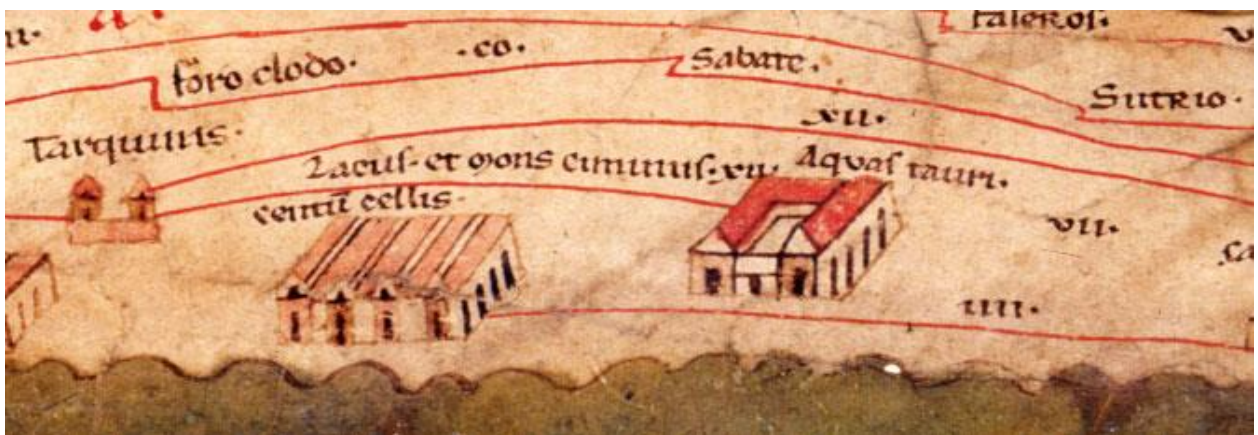 faleros.
foro clodo. .co. Sabate.
Sutrio.
Tarquinis.
xii.
Lacus. et mons ciminus. xii. Aquas tauri.
centū cellis.
vii.
iiii.